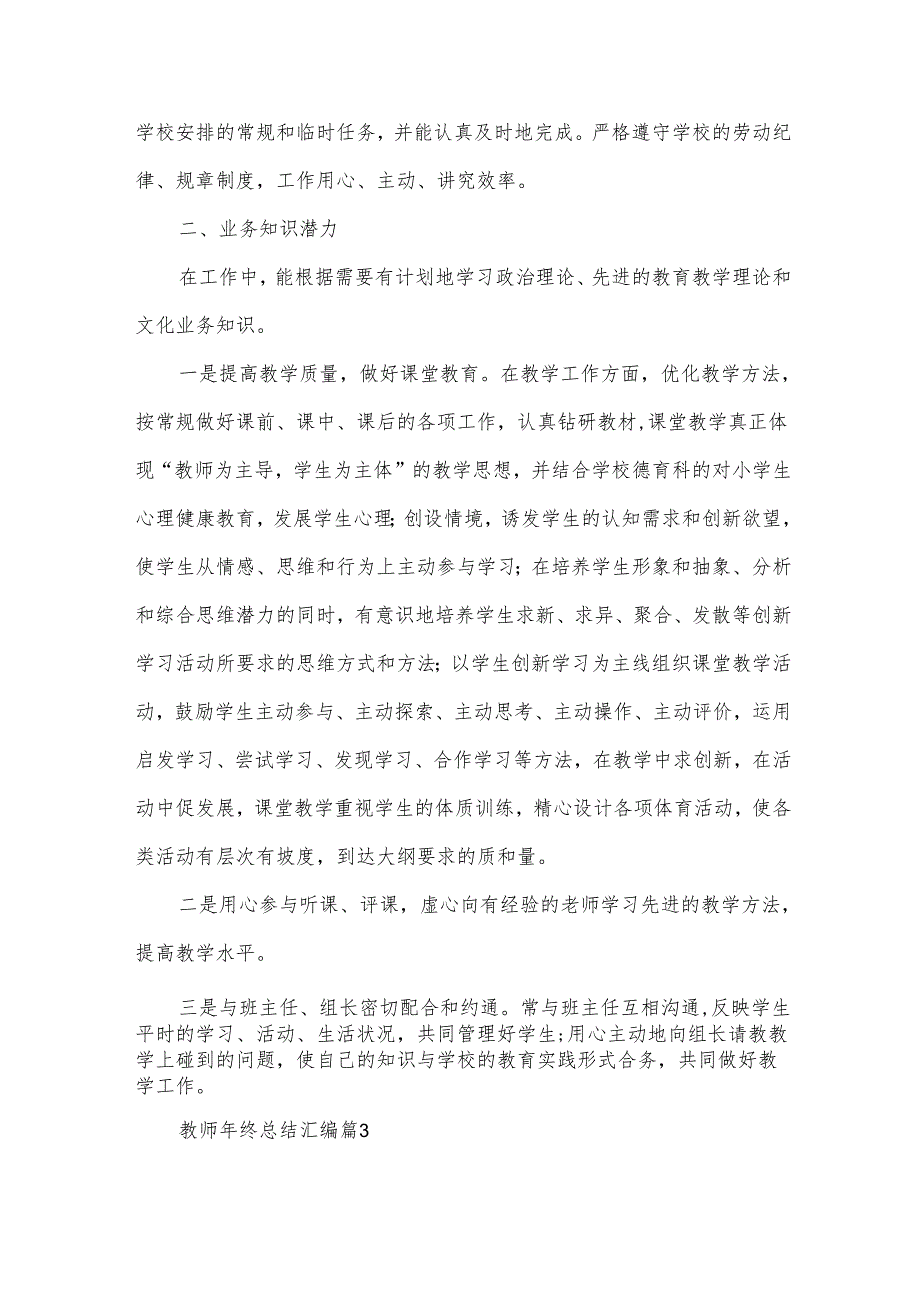 学校安排的常规和临时任务，并能认真及时地完成。严格遵守学校的劳动纪
律、规章制度，工作用心、主动、讲究效率。
二、业务知识潜力
在工作中，能根据需要有计划地学习政治理论、先进的教育教学理论和
文化业务知识。
一是提高教学质量，做好课堂教育。在教学工作方面，优化教学方法，
按常规做好课前、课中、课后的各项工作，认真钻研教材,课堂教学真正体
现“教师为主导，学生为主体”的教学思想，并结合学校德育科的对小学生
心理健康教育，发展学生心理；创设情境，诱发学生的认知需求和创新欲望，
使学生从情感、思维和行为上主动参与学习；在培养学生形象和抽象、分析
和综合思维潜力的同时，有意识地培养学生求新、求异、聚合、发散等创新
学习活动所要求的思维方式和方法；以学生创新学习为主线组织课堂教学活
动，鼓励学生主动参与、主动探索、主动思考、主动操作、主动评价，运用
启发学习、尝试学习、发现学习、合作学习等方法，在教学中求创新，在活
动中促发展，课堂教学重视学生的体质训练，精心设计各项体育活动，使各
类活动有层次有坡度，到达大纲要求的质和量。
二是用心参与听课、评课，虚心向有经验的老师学习先进的教学方法，
提高教学水平。
三是与班主任、组长密切配合和约通。常与班主任互相沟通,反映学生
平时的学习、活动、生活状况，共同管理好学生;用心主动地向组长请教教
学上碰到的问题，使自己的知识与学校的教育实践形式合务，共同做好教
学工作。
教师年终总结汇编篇3